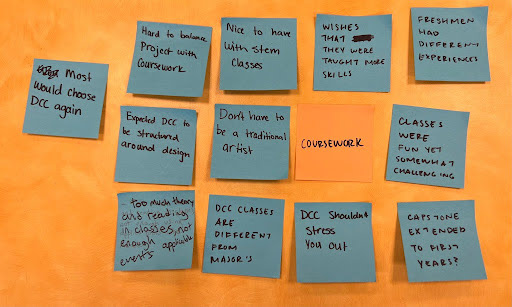 Most
would choose
DCC again
Hard to balance
Project with
Coursework
Nice to have
with stem
Classes
WISHES
THAT
THEY WERE
TAUGHT MORE
SKILLS
FRESHMEN
HAD
DIFFERENT
EXPERIENCES
Expected DCC to
be structured
around design
Don't have to
be a traditional
artist
COURSEWORK
CLASSES
WERE
FUN YET
SOMEWHAT
CHALLENGING
- too much theory
and readings
in classes, not
enough applicable
events
DCC CLASSES
ARE
DIFFERENT
FROM
MAJOR'S
DCC Shouldn't
Stress
You out
CAPSTONE
EXTENDED
TO FIRST
YEARS?